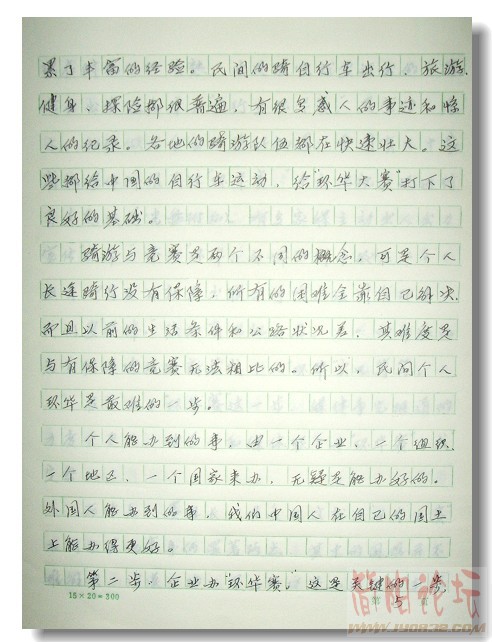 累了丰富的经验。民间的骑自行车出行、旅游、
健身、探险都很普遍，有很多感人的事迹和惊
人的纪录。各地的骑游队伍都在快速壮大。这
些都给中国的自行车运动，给“环华大赛”打下了
良好的基础。
骑游与竞赛是两个不同的概念，可是个人
长途骑行没有保障，所有的困难全靠自己解决，
而且以前的生活条件和公路状况差，其难度是
与有保障的竞赛无法相比的。所以，民间个人
环华是最难的一步。
个人能办到的事，由一个企业、一个组织、
一个地区、一个国家来办，无疑是能办好的。
外国人能办到的事，我们中国人在自己的国土
上能办得更好。
第二步，企业办“环华赛”。这是关键的一步
15×20=300
第 5 页
简阳论坛
www.jy0832.com